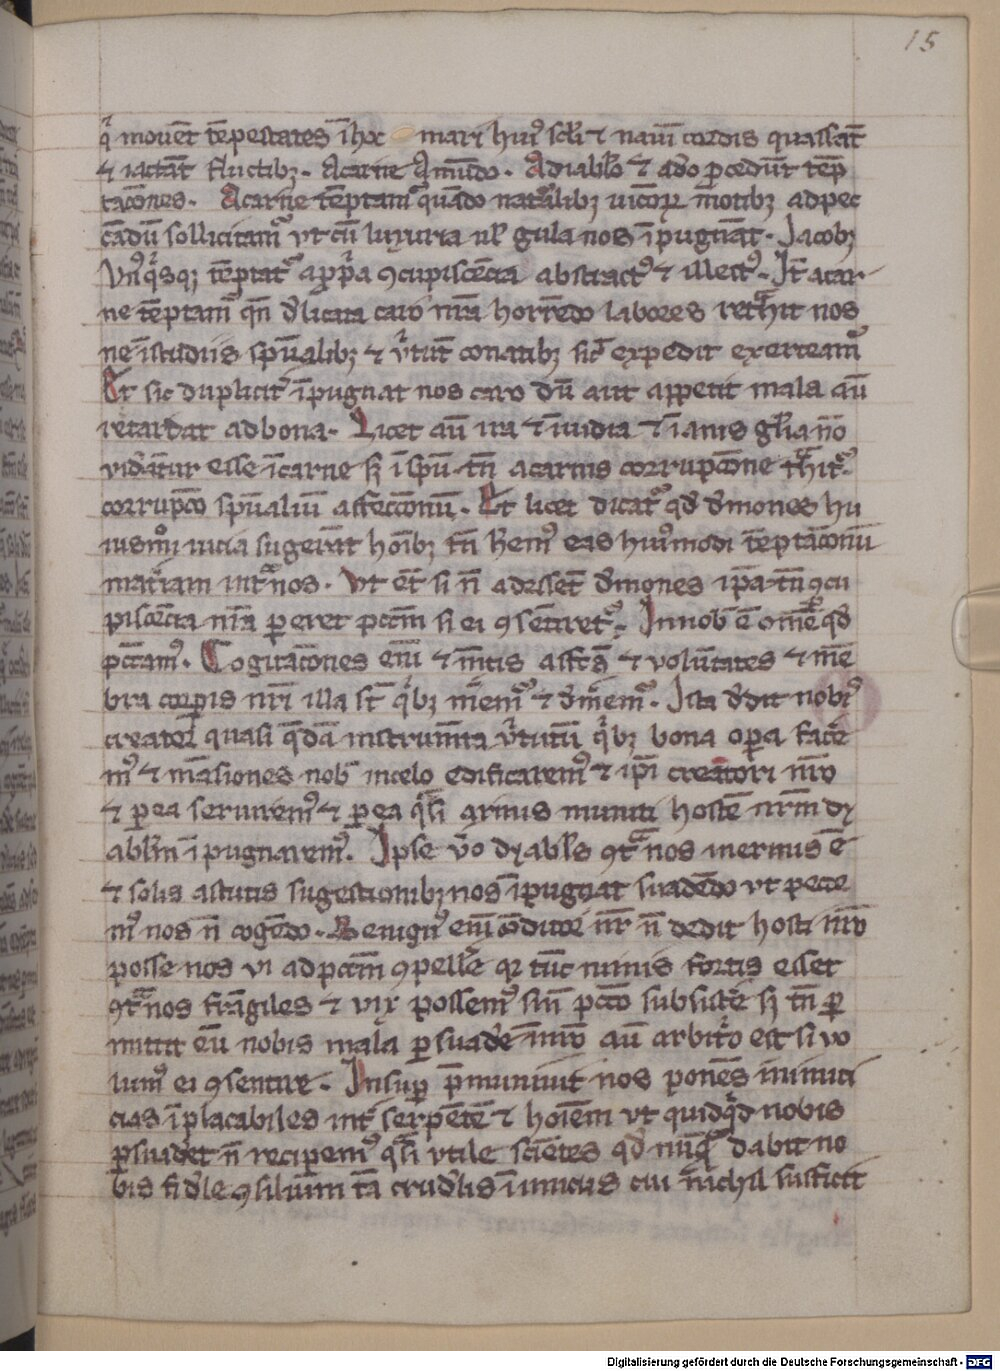 15
qͥ mouēt tēpestates ī hoc mari huiꝰ scl̄i ⁊ nauī cordis quassāt
⁊ iactāt fluctibꝫ. Acarne Amūdo. Adiabl̓o ⁊ adō ꝓcedūt tēp
tac̄ones. Acarne tēptamͬ quādo natᷓlibꝫ uicioꝝ motibꝫ adpec
cādū sollicitamͬ vt cū luxuria ul̓ gula nos īpugnāt. Jacobꝫ
Vnꝰqͥsqꝫ tēptatͬ aꝓpͥa ꝯcupiscēcia abstractꝰ ⁊ illectꝰ. Jt̄ acar
ne tēptamͬ qn̄ d̓licata caro nr̄a horrēdo labores retᷓhit nos
ne ī studiis sp̄ualibꝫ ⁊ v̓tut̄ conatibꝫ sic̄ expedit exerceamͬ
Et sic duplicit̓ īpugnat nos caro dū aut appetit mala aū
retardat adbona. Licet aū ira ⁊ īuidia ⁊ īanis gl̓ia nō
vidēntur esse īcarne sꝫ ī sp̄u tn̄ acarnis corrupcōne tᷓhitͬ
corrupcō sp̄ualiū affeccōnū. Et licet dicatͬ qd̓ d̓mones hu
iusmōi uicia sugerāt hoī̄bꝫ tn̄ h̓emꝰ eas huiꝰmodi tēptac̄onū
mat̓iam int̓ nos. Vt et̄ si n̄ adessēt d̓mones ip̄a tn̄ ꝯcu
piscēcia nr̄a ꝑeret pctm̄ si ei ꝯsētiretͬ. Jn nob̄ ē omē qd̓
pctamꝰ. Cogitac̄ones em̄ ⁊ mētis affc̄tꝰ ⁊ volūtates ⁊ mē
bra corꝑis nr̄i illa st̄ qͥbꝫ m̓emͬ ⁊ d̓m̓emͬ. Jsta d̓dit nobiꝰ
creator quasi qᷓdā instrum̄ta v̓tutū qͥbꝫ bona oꝑa fac̓e
mꝰ ⁊ mᷓsiones nob̄ incelo edificaremꝰ ⁊ ip̄i creatori nr̄o
⁊ ꝑ ea seruiremꝰ ⁊ ꝑ ea qᷓsi armis muniti hostē nr̄m dy
abl̓m īpugnaremꝰ. Jpse v̓o dyabl̓s ꝯtᷓ nos inermis ē
⁊ solis astutis sugestionibꝫ nos īpugnat suadēdo vt pecce
mꝰ nos n̄ cogēdo. Benignꝰ em̄ ꝯditor nr̄ n̄ dedit hosti nr̄o
posse nos vi adpctm̄ ꝯpell̓e qꝛ tūc nimis fortis esset
ꝯtᷓ nos fragiles ⁊ vix possemꝰ sin̄ pctō subsist̓e sꝫ tn̄ ꝑ
mittit eū nobis mala ꝑsuad̓e ī nr̄o aū arbitͥo est si vo
lumꝰ ei ꝯsentire. Jnsuꝑ p̄muniuit nos ponēs inimici
cias īplacabiles int̓ serpētē ⁊ hoīem vt quidqͥd nobis
ꝑsuadet n̄ reciꝑemꝰ qᷓsi vtile sciētes qd̓ nūqᷓ dabit no
bis fid̓le ꝯsiliūm tā crud̓lis īimicus cui nichil sufficit
Digitalisierung gefördert durch die Deutsche Forschungsgemeinschaft - DFG